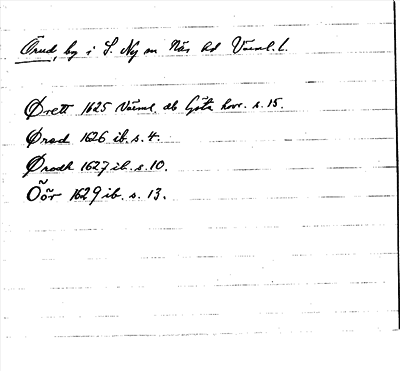 Örud, by i S. Ny sn Näs hd Värml. l.
Örett 1625 Värml. db Göta hovr. s. 15.
Örad 1626 ib. s. 4.
Örodh 1627 ib. s. 10.
Öör 1629 ib. s. 13.